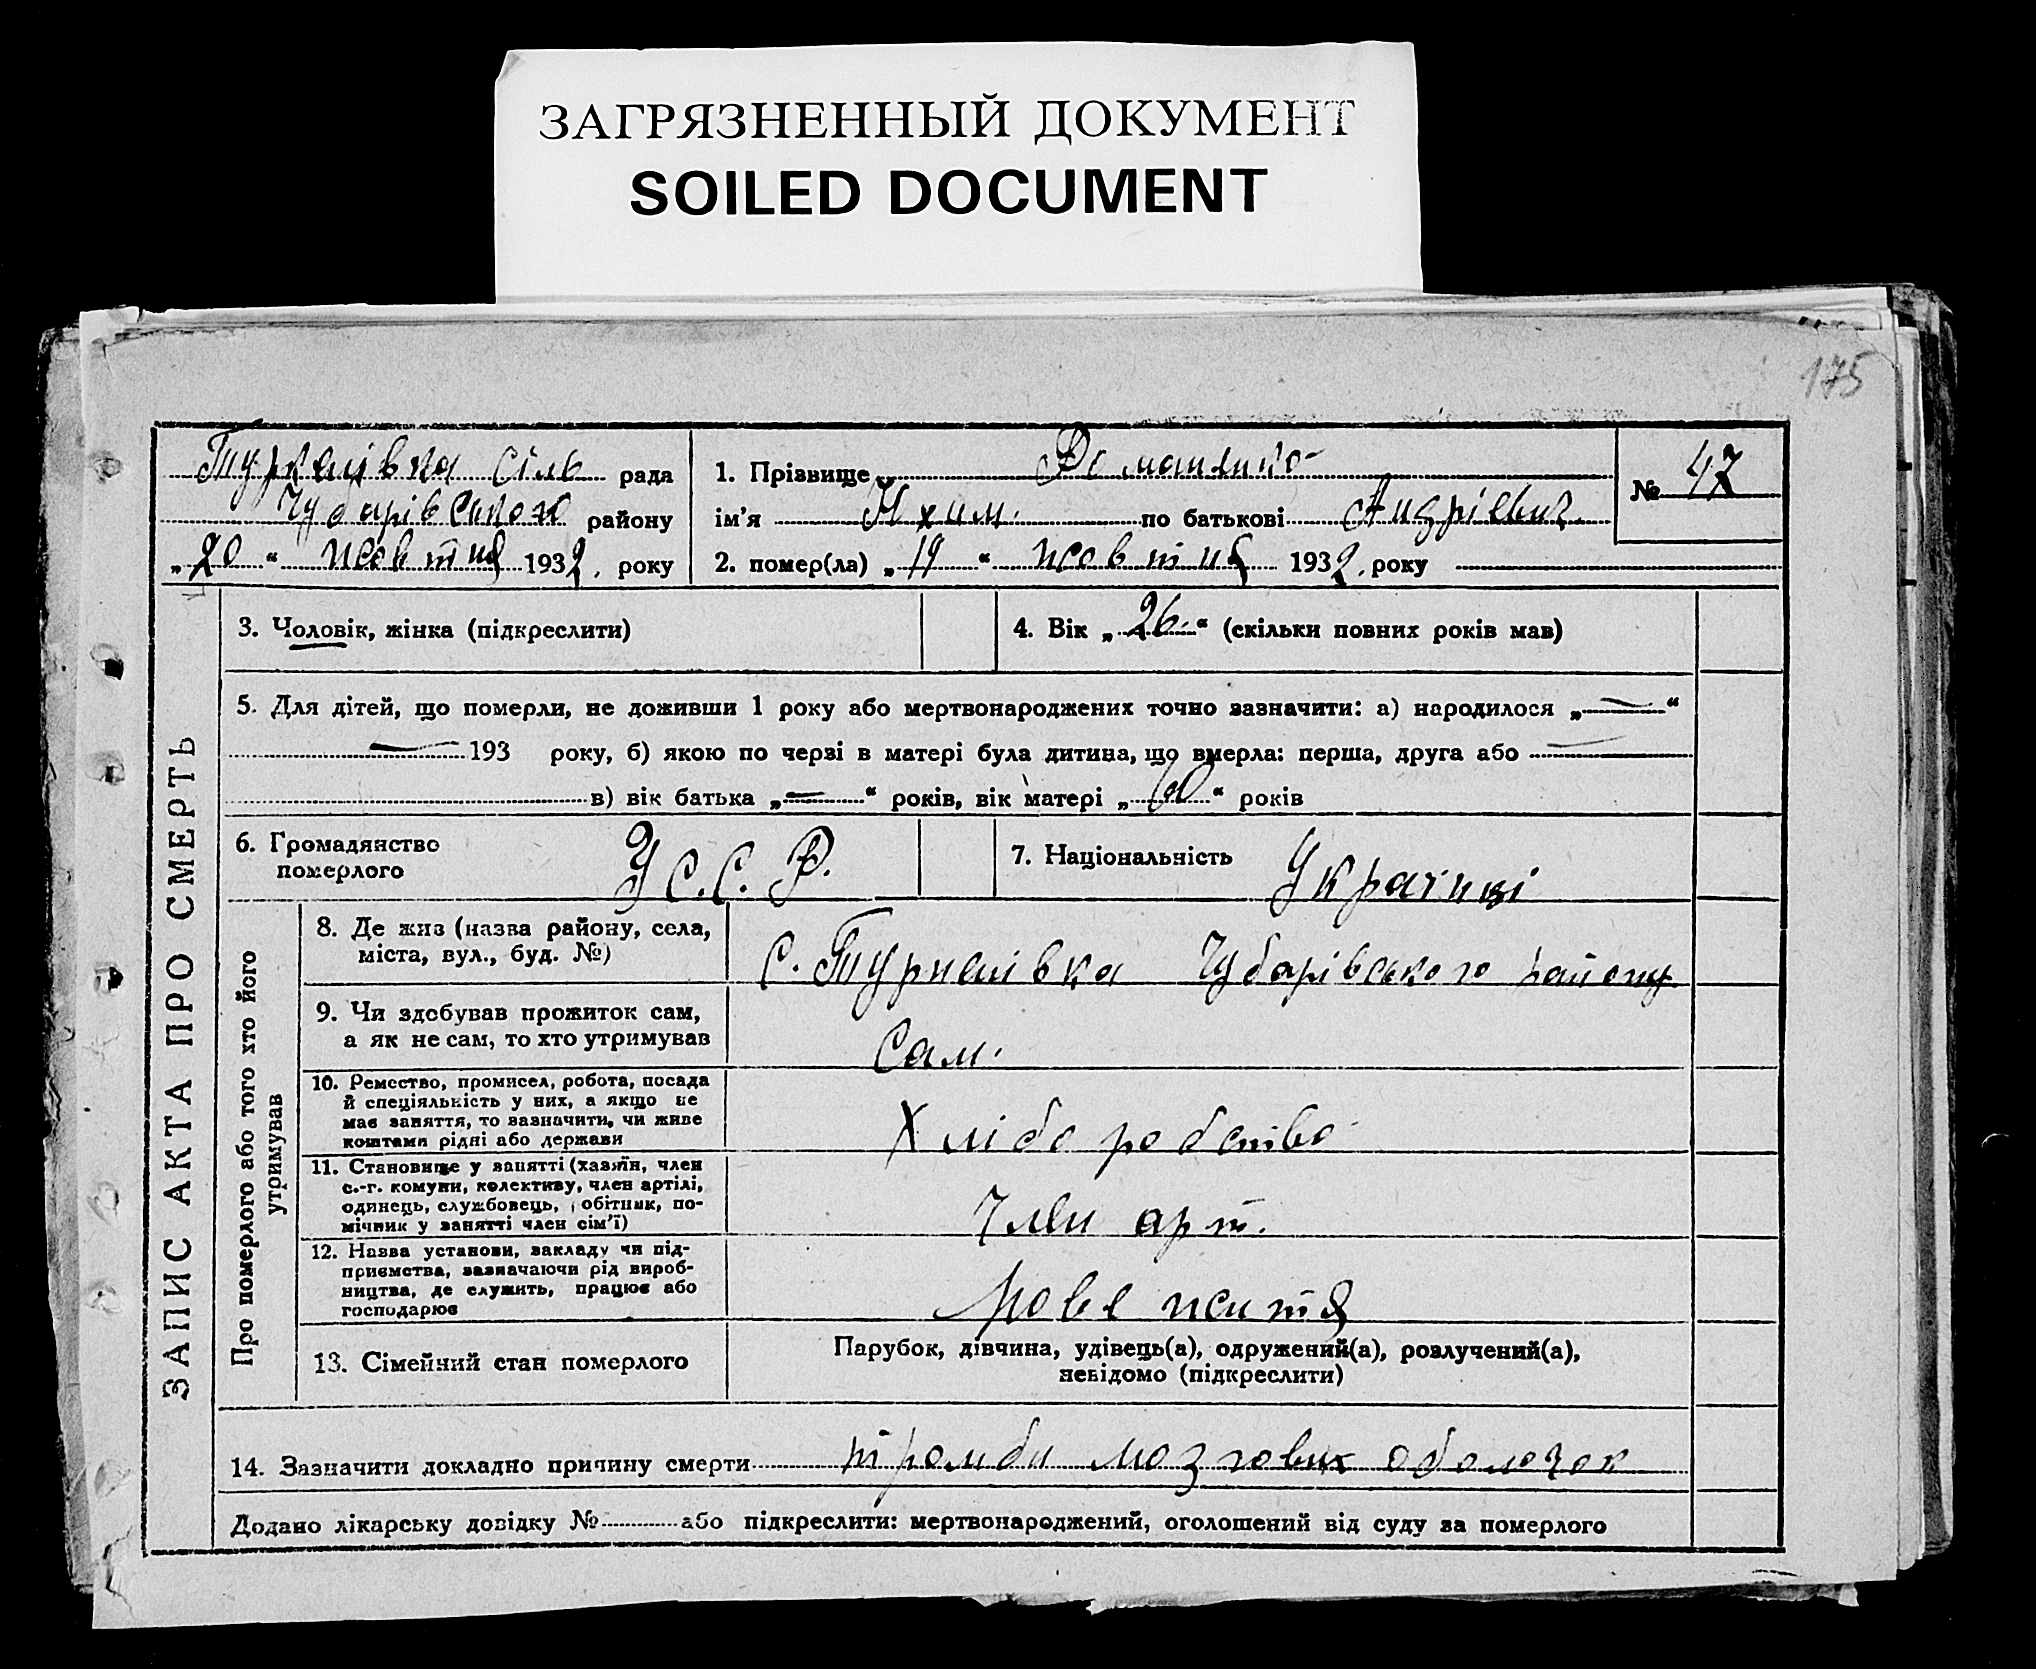 ЗАГРЯЗНЕННЫЙ ДОКУМЕНТ
SOILED DOCUMENT
175
Туркенівка сіль рада
Чубарівського району
„20“ жовтня 1932. року
1. Прізвище Романенко
№ 47
ім'я Юхим. по батькові Андрієвич
2. помер(ла) „19“ жовтня 1932. року
ЗАПИС АКТА ПРО СМЕРТЬ
3. Чоловік, жінка (підкреслити)
4. Вік „26.“ (скільки повних років мав)
5. Для дітей, що померли, не доживши 1 року або мертвонароджених точно зазначити: а) народилося „—“
— 193 року, б) якою по черзі в матері була дитина, що вмерла: перша, друга або —
в) вік батька „—“ років, вік матері „60“ років
6. Громадянство
померлого
У С. С. Р.
7. Національність Українці
Про померлого або того хто його
утримував
8. Де жив (назва району, села,
міста, вул., буд. №)
с. Туркенівка Чубарівського району
9. Чи здобував прожиток сам,
а як не сам, то хто утримував
Сам.
10. Ремество, промисел, робота, посада
й спеціяльність у них, а якщо не
має заняття, то зазначити, чи живе
коштами рідні або держави
Хліборобство
11. Становище у занятті (хазяїн, член
с.-г. комуни, колективу, член артілі,
одинець, службовець, робітник, по-
мічник у занятті член сім'ї)
Член арт.
12. Назва установи, закладу чи під-
приємства, зазначаючи рід вироб-
ництва, де служить, працює або
господарює
Нове життя
13. Сімейний стан померлого
Парубок, дівчина, удівець(а), одружений(а), розлучений(а),
невідомо (підкреслити)
14. Зазначити докладно причину смерти тромби мозгових оболочок
Додано лікарську довідку № або підкреслити: мертвонароджений, оголошений від суду за померлого